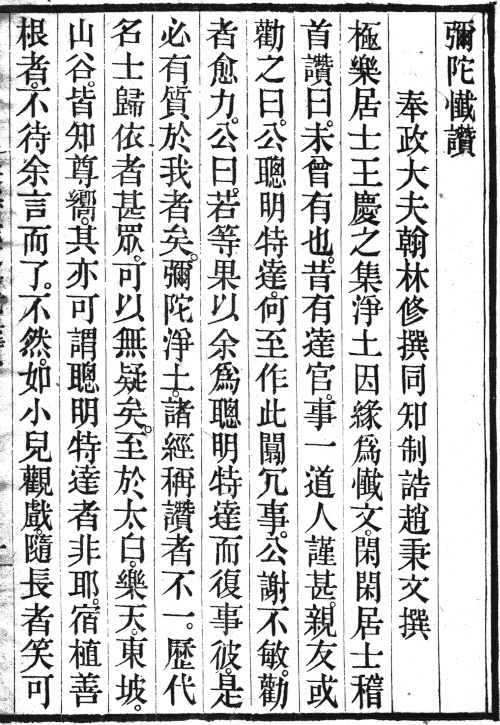 彌陀懺讚
奉政大夫翰林修撰同知制誥趙秉文撰
極樂居士王慶之集淨土因緣爲懺文。閑閑居士稽
首讚曰。未曾有也。昔有達官。事一道人謹甚。親友或
勸之曰。公聰明特達。何至作此闒冗事。公謝不敏。勸
者愈力。公曰。若等果以余爲聰明特達而復事彼。是
必有質於我者矣。彌陀淨土。諸經稱讚者不一。歷代
名士歸依者甚眾。可以無疑矣。至於太白。樂天。東坡。
山谷。皆知尊嚮。其亦可謂聰明特達者非耶。宿植善
根者。不待余言而了。不然。如小兒觀戲。隨長者笑可